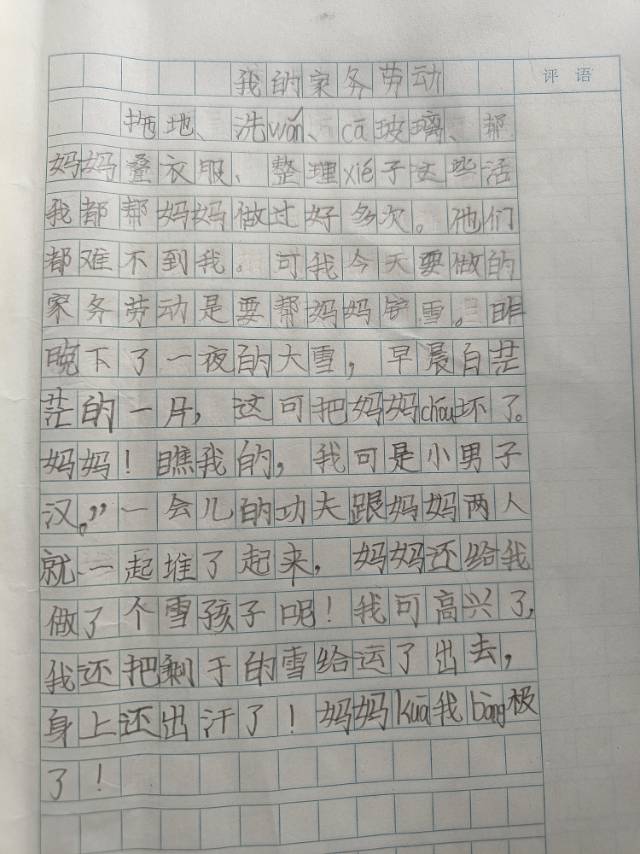 我的家务劳动
评语
拖地、洗wǎn、cā玻璃、帮
妈妈叠衣服、整理xié子这些活
我都帮妈妈做过好多次。他们
都难不到我。可我今天要做的
家务劳动是要帮妈妈铲雪。昨
晚下了一夜的大雪，早晨白茫
茫的一片，这可把妈妈chóu坏了。
妈妈！瞧我的，我可是小男子
汉。”一会儿的功夫跟妈妈两人
就一起堆了起来，妈妈还给我
做了个雪孩子呢！我可高兴了，
我还把剩于的雪给运了出去，
身上还出汗了！妈妈kuā我bàng极
了！